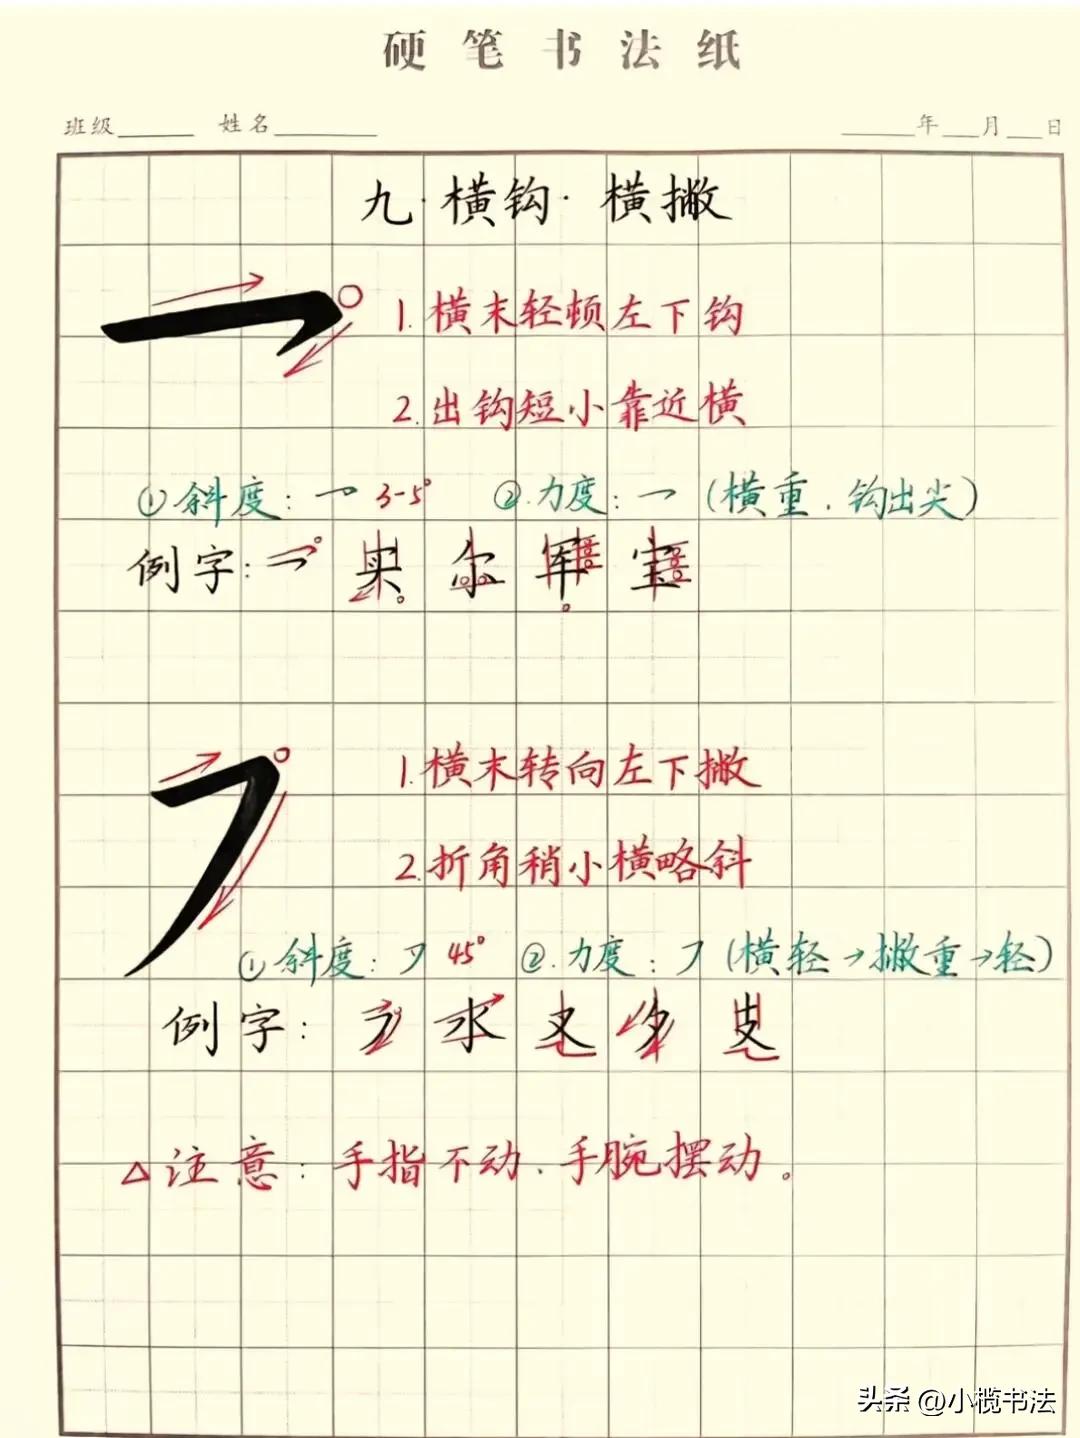 硬笔书法纸
班级______ 姓名______ ______年___月___日
九·横钩·横撇
1.横末轻顿左下钩
2.出钩短小靠近横
①斜度:㇖ 3-5° ②力度:㇖ (横重.钩出尖)
例字:㇖ 买 尔 军 宝
1.横末转向左下撇
2.折角稍小横略斜
①斜度:㇇ 45° ②.力度:㇇ (横轻→撇重→轻)
例字:㇇ 水 又 多 支
△注意:手指不动.手腕摆动。
头条 @小榄书法